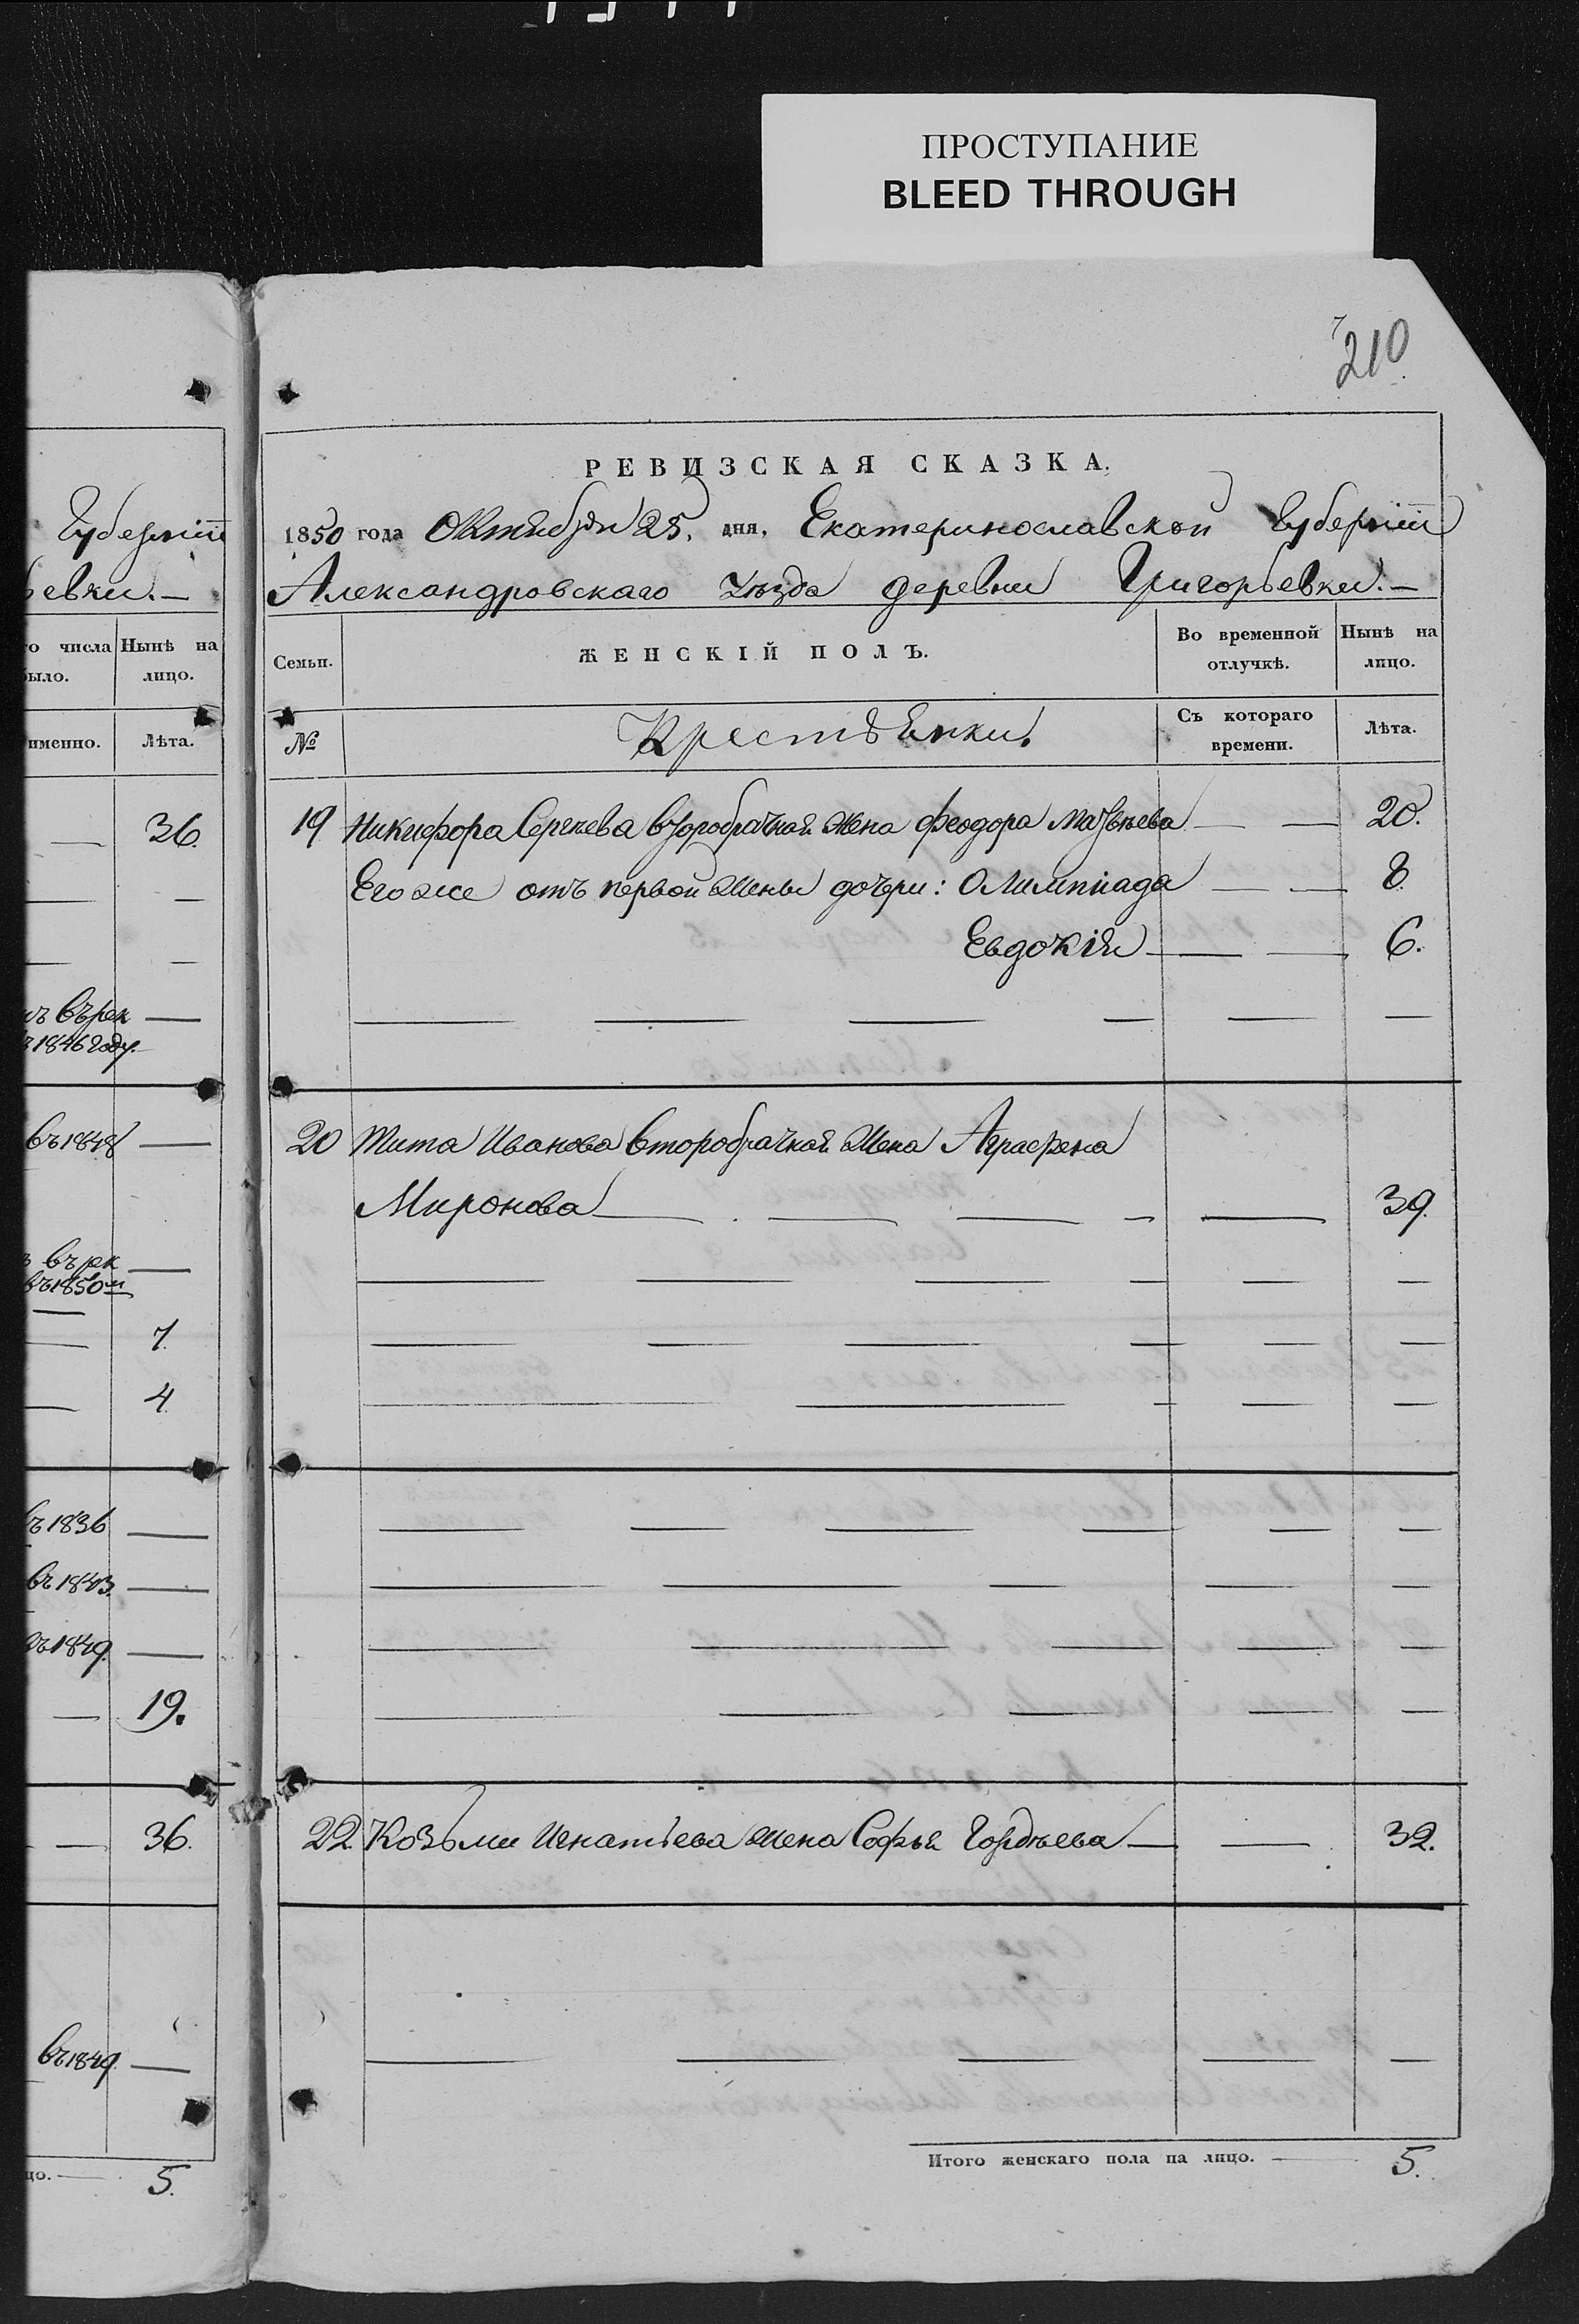 ПРОСТУПАНИЕ
BLEED THROUGH
210
РЕВИЗСКАЯ СКАЗКА.
1850 года Октября 25. дня, Екатеринославской Губернiи
Александровскаго Уѣзда деревни Григорьевки.—
Губернiи
ьевки.—
го числа
было.
Нынѣ на
лицо.
именно.
Лѣта.
Семьи.
ЖЕНСКIЙ ПОЛЪ.
Во временной
отлучкѣ.
Нынѣ на
лицо.
№
Крестьянки.
Съ котораго
времени.
Лѣта.
36.
19 Никифора Сергѣева второбрачная жена Феодора Матвѣева — — 20.
Его же отъ первой жены дочери: Олимпiада — — 8.
Евдокiя — — 6.
въ рек
1846 году.
въ 1848
20 Тита Иванова второбрачная жена Аграфена
Миронова — 39.
въ рек
въ 1850м
7.
4.
въ 1836
въ 1843.
въ 1849.
19.
36.
22. Козьми Игнатьева жена Софья Гордѣева — 32.
въ 1849.
цо. — 5.
Итого женскаго пола на лицо. — 5.